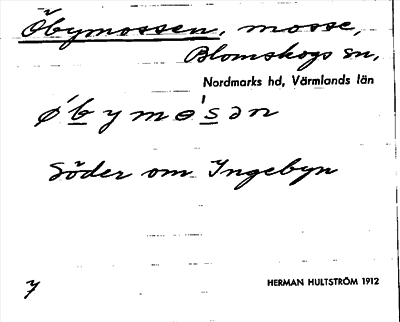 Öbymossen, mosse,
Blomskogs sn,
Nordmarks hd, Värmlands län
ǿbymɵ'sən
Söder om Ingebyn
7
HERMAN HULTSTRÖM 1912